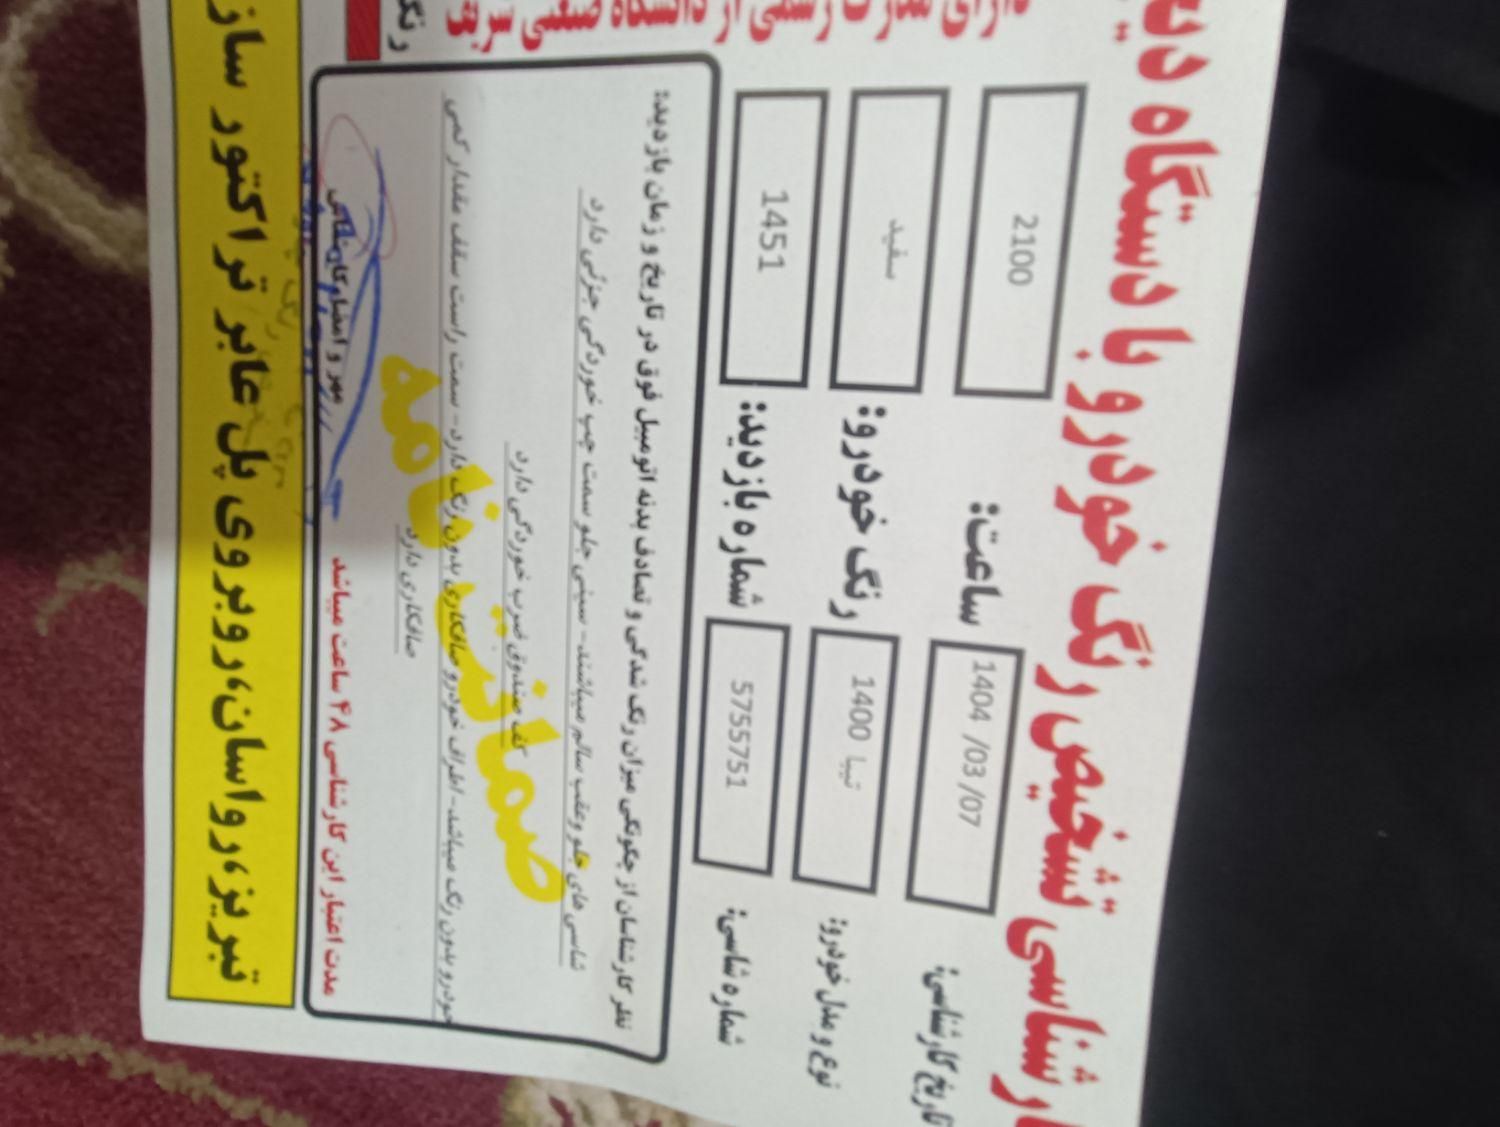 کارشناسی تشخیص رنگ خودرو با دستگاه دیجیتال
دارای مدرک رسمی از دانشگاه صنعتی شریف
تاریخ کارشناسی: 1404 /03 /07 ساعت: 2100
نوع و مدل خودرو: تیبا 1400 رنگ خودرو: سفید
شماره شاسی: 5755751 شماره بازدید: 1451
نظر کارشناسان از چگونگی میزان رنگ شدگی و تصادف بدنه اتومبیل فوق در تاریخ و زمان بازدید:
شاسی های جلو وعقب سالم میباشند- سینی جلو سمت چپ خوردگی جزئی دارد
کف صندوق ضرب خوردگی دارد
خودرو بدون رنگ میباشد- اطراف خودرو صافکاری بدون رنگ دارد- سمت راست سقف مقدار کمی
صافکاری دارد
ضمانت نامه
مدت اعتبار این کارشناسی ۴۸ ساعت میباشد
مهر و امضا کارشناس
رنگ
تبریز، رواسان، روبروی پل عابر تراکتور ساز